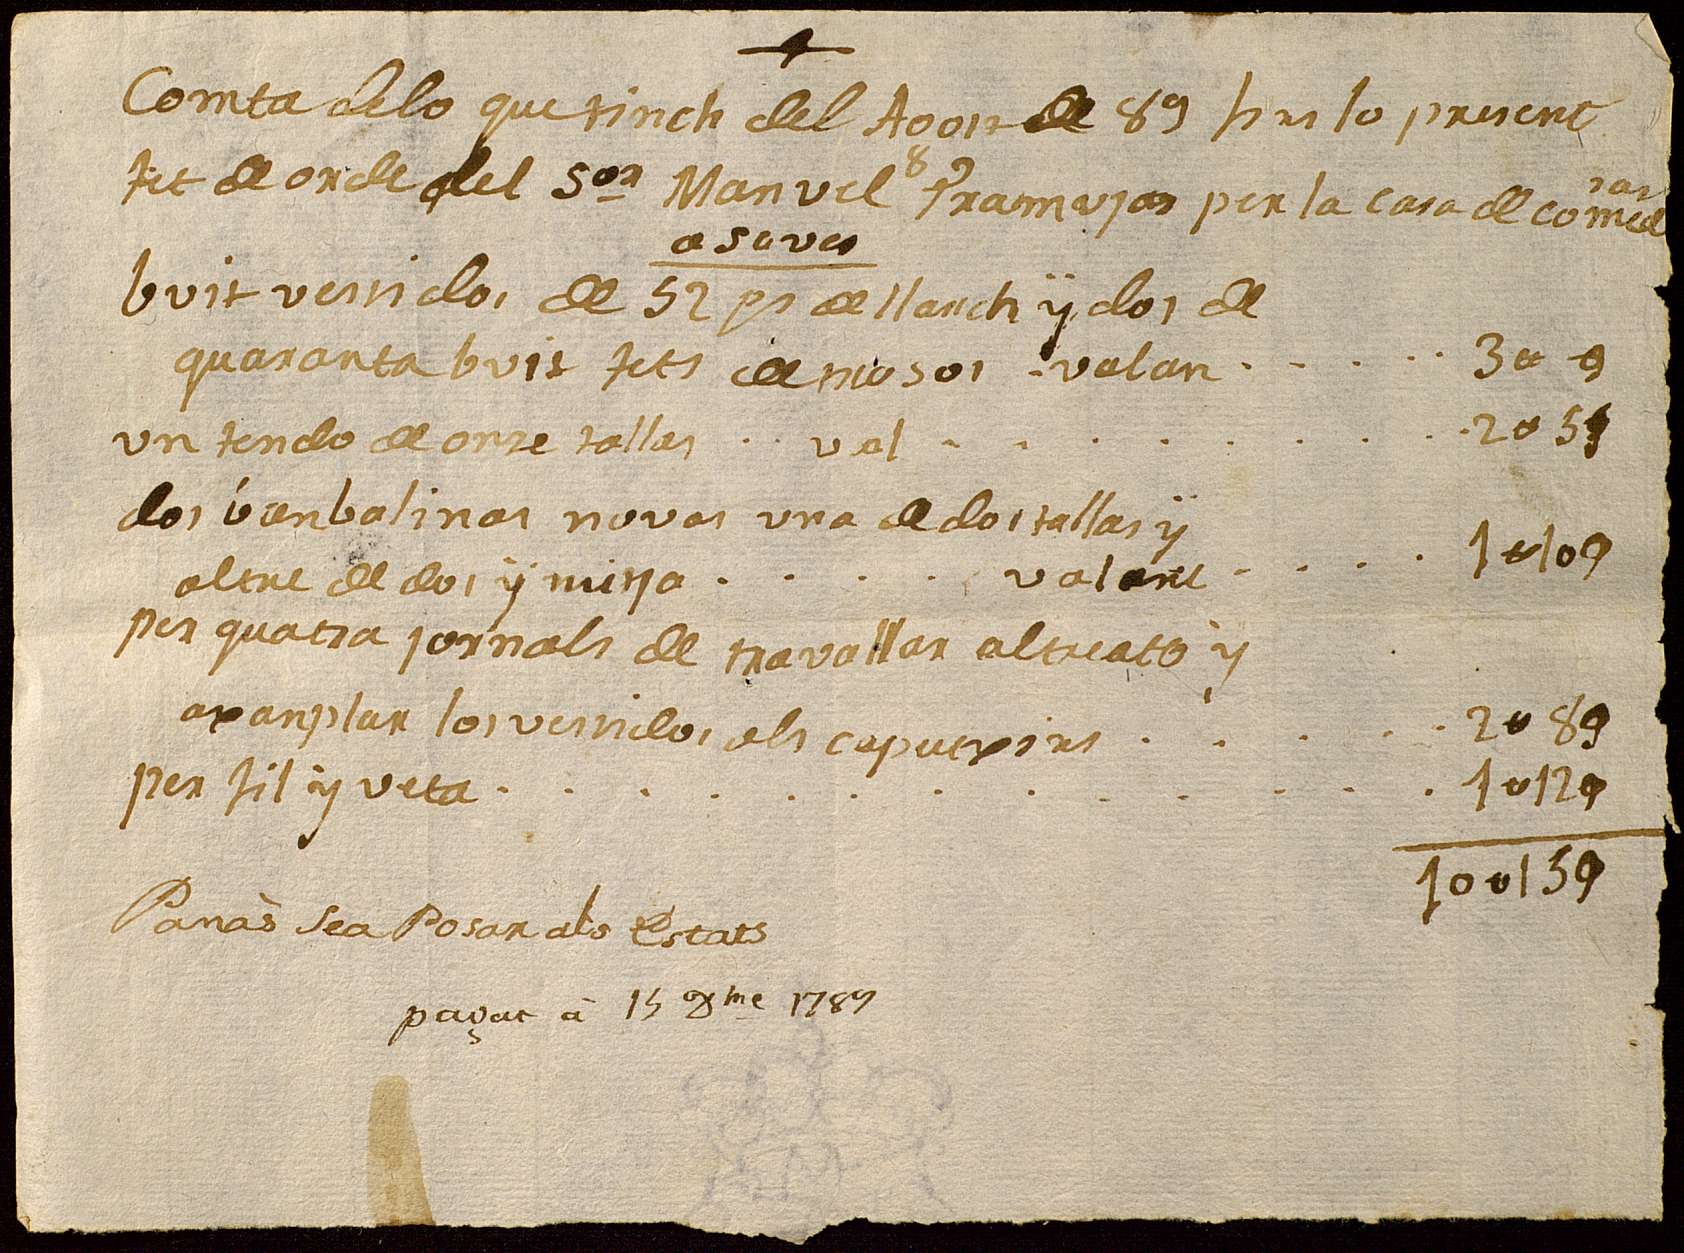 Comta delo que tinch del Agost de 89 fins lo present
fet de orde del Sor Manuel Pramujas per la casa de comedias
a saver
vuit vestidos de 52 ps de llarch ÿ dos de
quaranta vuit fets de nou valan 3 9
un tendo de onze tallas val 2 5 9
dos vanbalinas novas una de dos tallas ÿ
altre de dos ÿ mitja valent 1 10 9
per quatra jornals de travallar al treato ÿ
axanplar los vestidos als caputxins 2 8 9
per fil ÿ veta 1 12 9
10 15 9
Panàs Sea Posar als Estats
pagat à 15 Xbre 1789